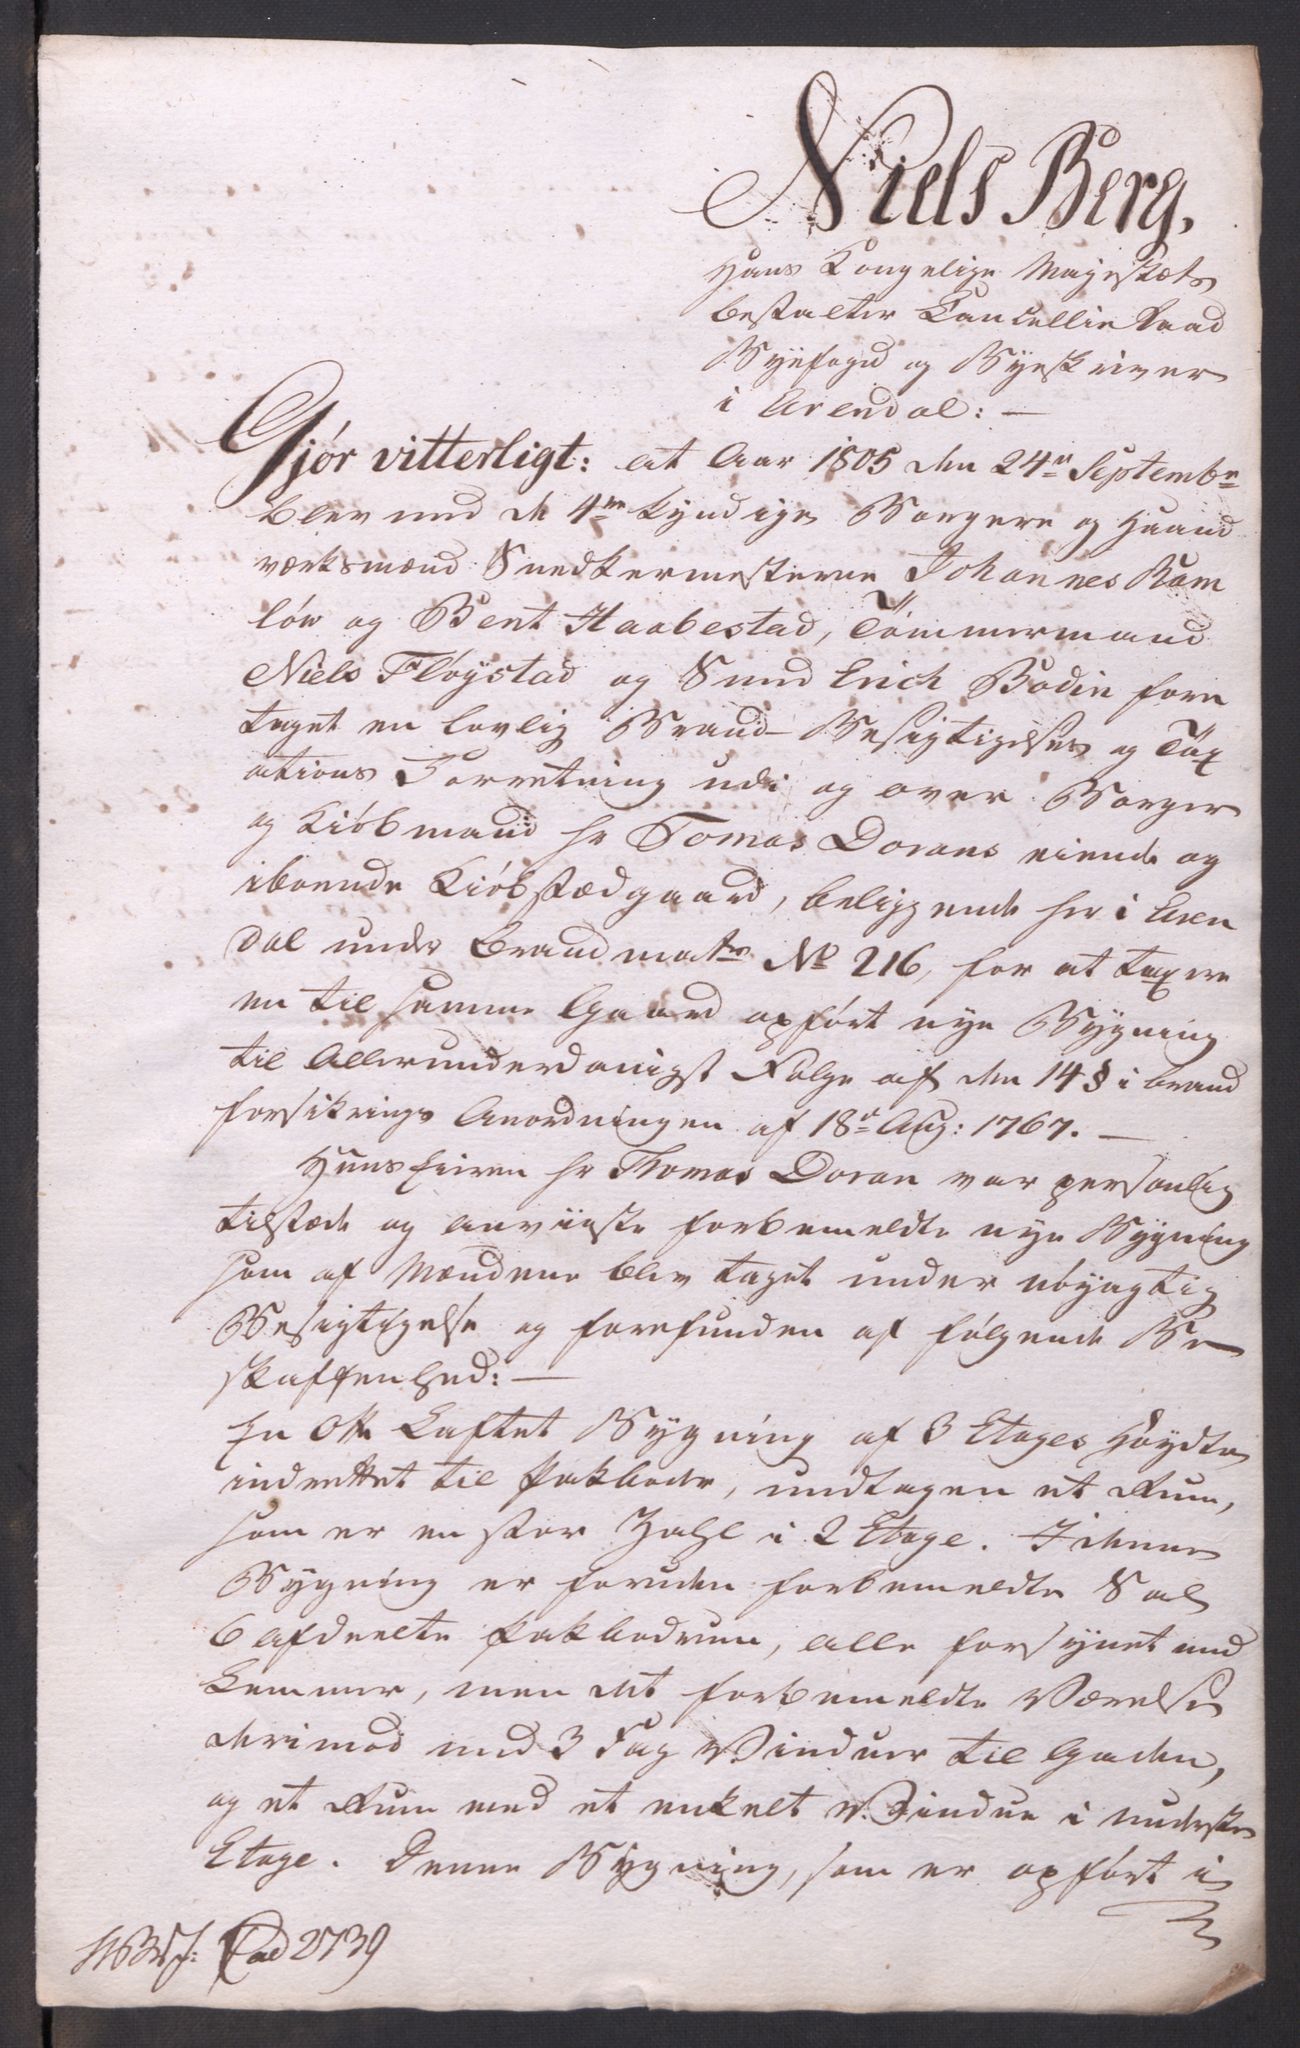 Niels Berg,
Hans Kongelige Majestæts
bestalter Cancellie Raad
Byefoged og Byeskriver
i Arendal: —
Gjør vitterligt: at Aar 1805 den 24de Septembr
blev med de 4re kyndige Borgere og Haand
værksmænd Snedkermesterne Johannes Ram
løw og Bent Haabestad, Tømmermand
Niels Fløystad og Smed Erich Bodin fore
taget en lovlig Brand-Besigtigelses og Tax
ations Forretning udi og over Borger
og Kiøbmand Hr Tomas Dorans eiende og
iboende Kiøbstædgaard, beliggende her i Aren
dal under Brandmatr No 216, for at taxere
en til samme Gaard opført nye Bygning
til Allerunderdanigst Følge af den 14 § i brand
forsikrings Anordningen af 18de Aug: 1767. —
Huuseieren Hr Thomas Doran var personlig
tilstæde og anviiste forbemeldte nye Bygning
som af Mændene blev taget under nøyagtig
Besigtigelse og forefunden af følgende Be
skaffenhed: —
En Ott Laftet Bygning af 3 Etages Høyde
indrettet til Pakboder, undtagen et Rum,
som er en stor Zahl i 2 Etage. I denne
Bygning er foruden forbemeldte Sal
6 afdeelte Pakbodrum, alle forsynet med
Lemmer, men det forbemeldte Værelse
derimod med 3 Fag Vinduer til Gaden,
og et Rum med et enkelt Vindue i nederste
Etage. Denne Bygning, som er opført i
ad 2739